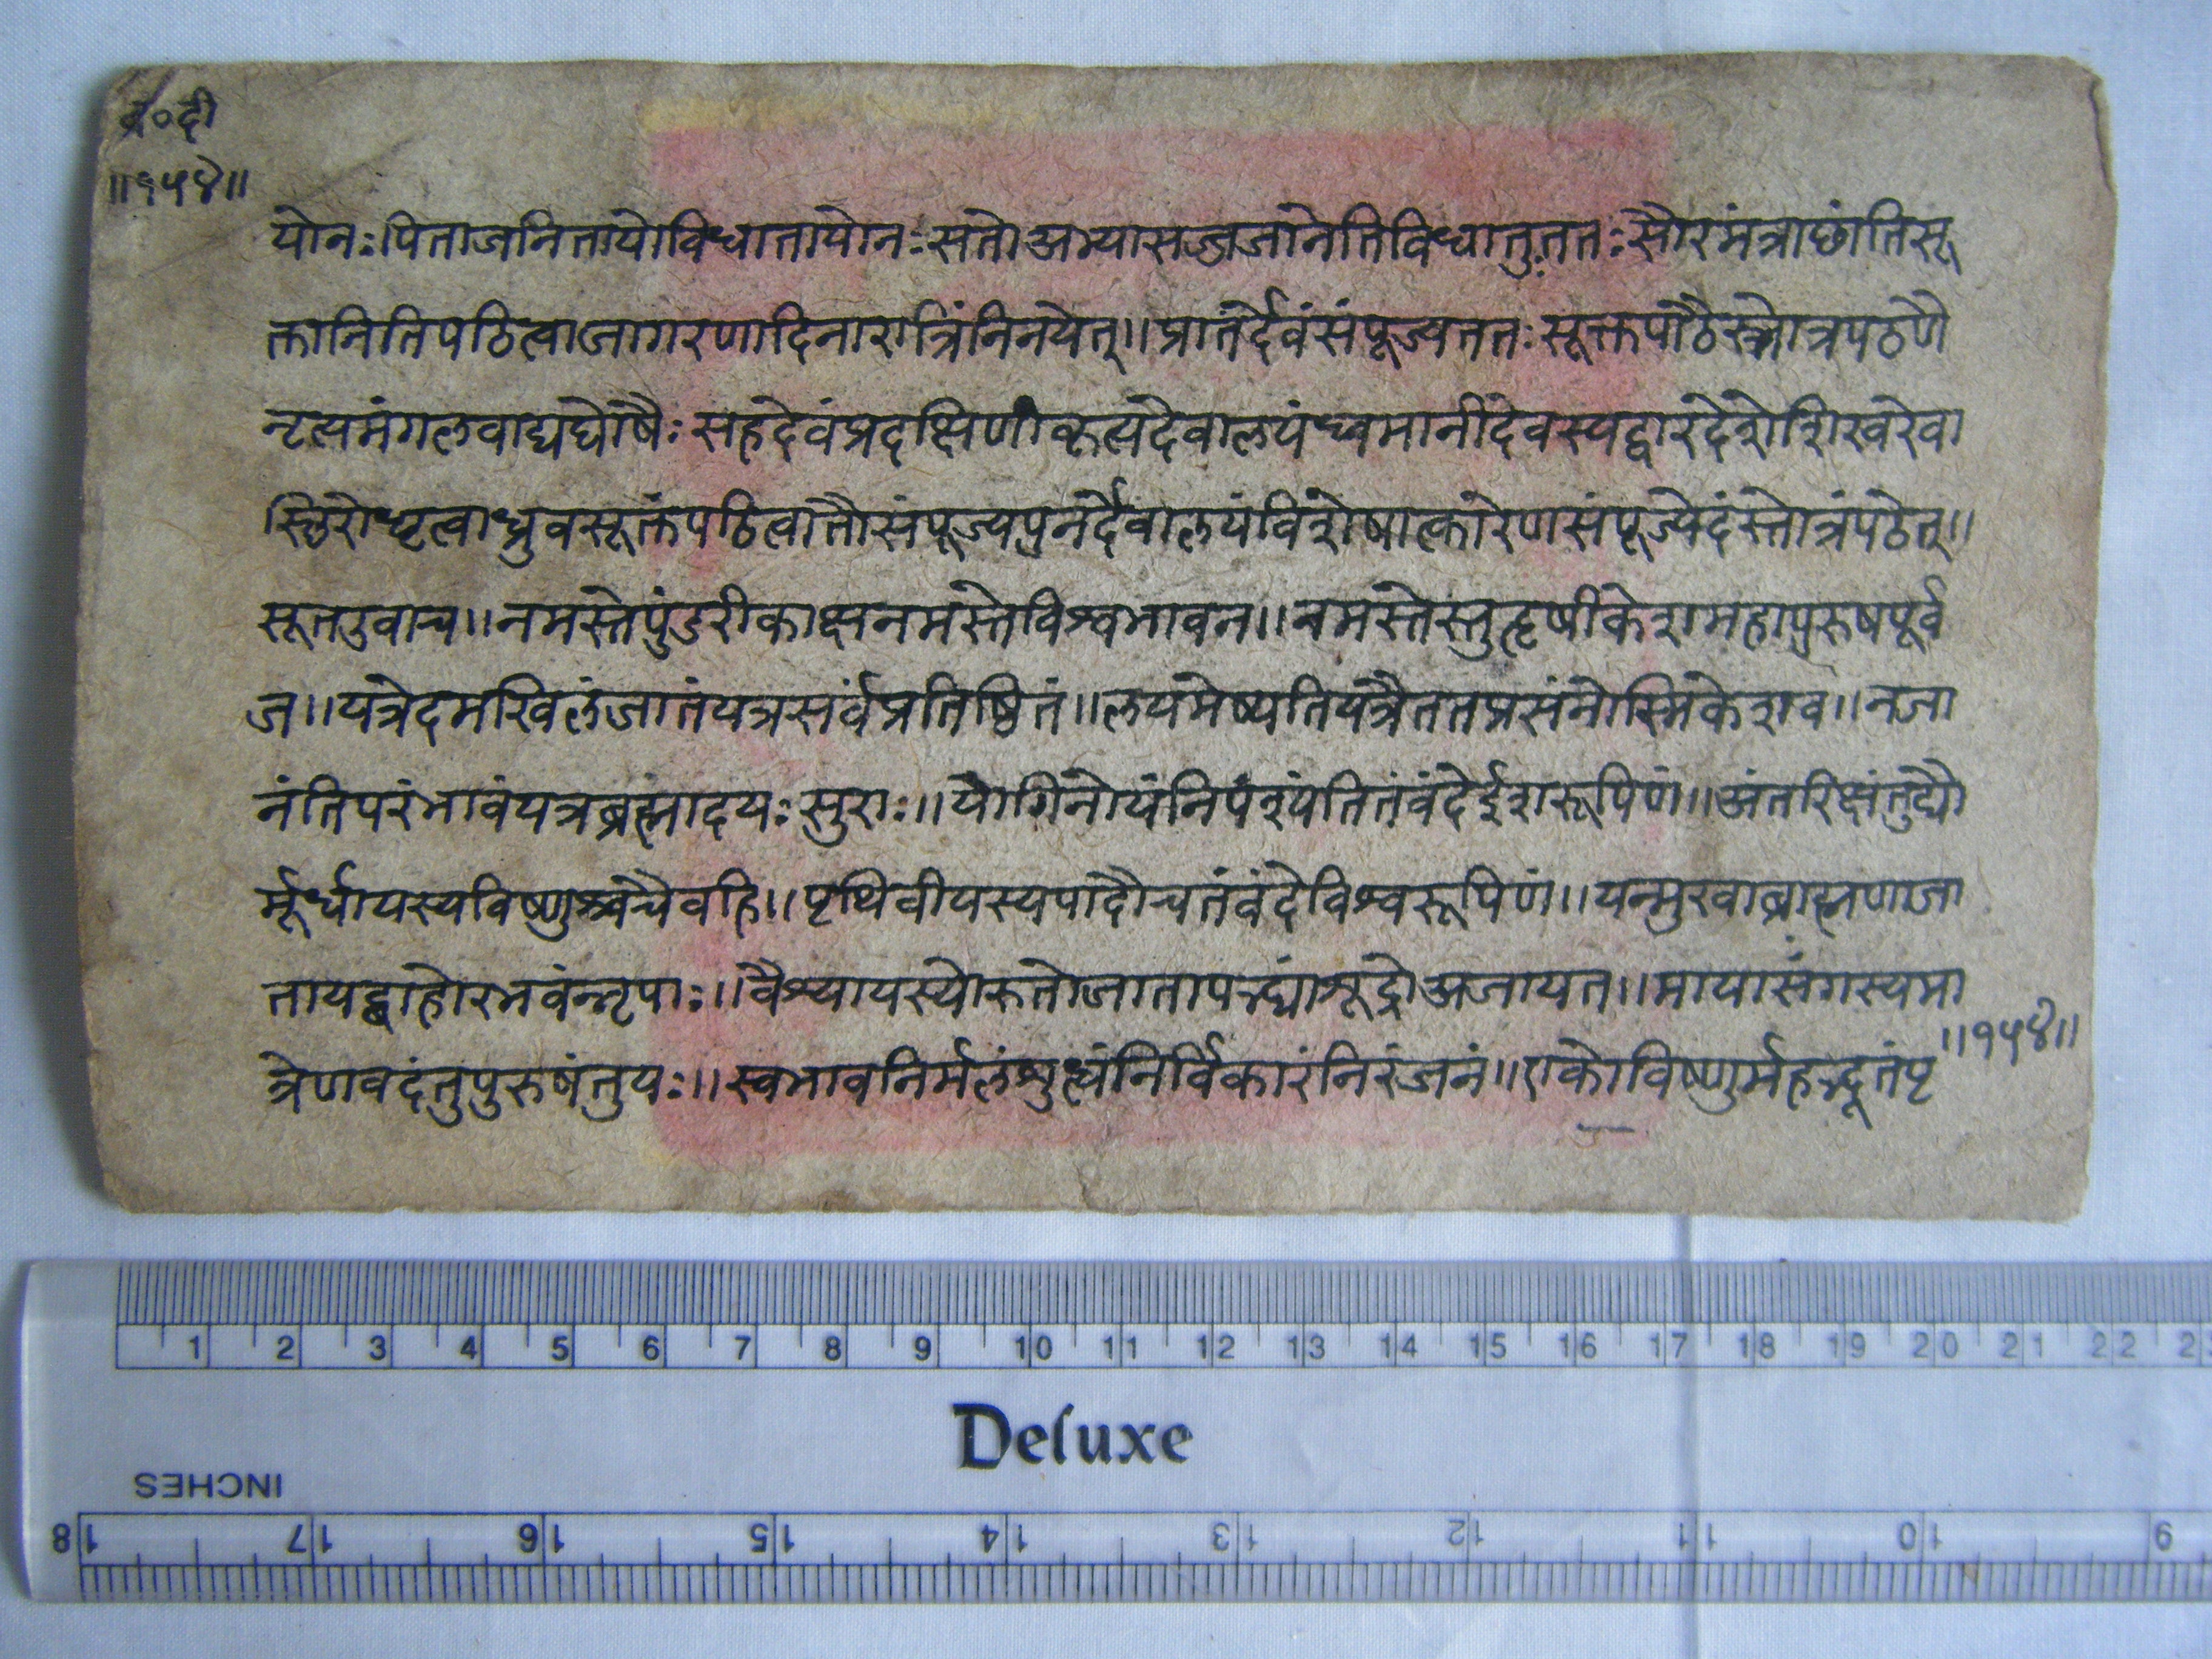 ब्र०दी
॥१५४॥
योनःपिताजनितायोविधातायोनःसतोअभ्यासज्जजानेतिविधातुततःसौरमंत्राछांतिसू
क्तानितिपठित्वाजागरणादिनारात्रिंनिनयेत्॥प्रातर्देवंसंपूज्यततःसूक्तपाठैस्त्रोत्रपठणै
नृत्यमंगलवाद्यघोषैःसहदेवंप्रदक्षिणीकृत्यदेवालयंध्वमानीदेवस्यद्वारदेशेशिखरेवा
स्छिरोधृत्वाध्रुवसूक्तंपठित्वातौसंपूज्यपुनर्देवालयंविशेषात्कारेणसंपूज्येदंस्तोत्रंपठेत्॥
सूतउवाच॥नमस्तेपुंडरीकाक्षनमस्तेविश्वभावन॥नमस्तेस्तुहृषीकेशमहापुरुषपूर्व
ज॥यत्रेदमखिलंजातंयत्रसर्वंप्रतिष्ठितं॥लयमेष्यतियत्रैततप्रसंनोस्मिकेशव॥नजा
नंतिपरंभावंयत्रब्रह्मादयःसुराः॥योगिनोयंनिपंश्यंतितंवंदेईशरूपिणं॥अंतरिक्षंतुद्यौ
र्मूर्धायस्यविष्णुश्चैवहि॥पृथिवीयस्यपादौचतंवंदेविश्वरूपिणं॥यन्मुखाब्राह्मणाजा
तायद्बाहोरभवंन्नृपाः॥वैश्यायस्योरुतोजातापद्भ्यांशूद्रोअजायत॥मायासंगस्यमा
त्रेणवदंतुपुरुषंतुयः॥स्वभावनिर्मलंशुत्धंनिर्विकारंनिरंजनं॥एकोविष्णुर्महद्भूतंपृ
॥१५४॥
1 2 3 4 5 6 7 8 9 10 11 12 13 14 15 16 17 18 19 20 21 22 2
Deluxe
INCHES
18 17 16 15 14 13 12 11 10 9